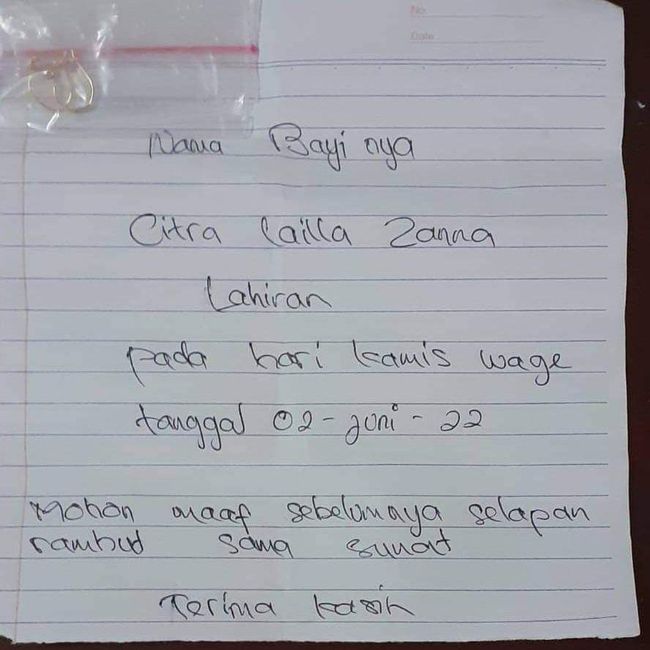 No.
Date
Nama Bayi nya
Citra Lailla Zanna
Lahiran
pada hari kamis wage
tanggal 02 - juni - 22
Mohon maaf sebelumnya selapan
rambut sama sunat
Terima kasih